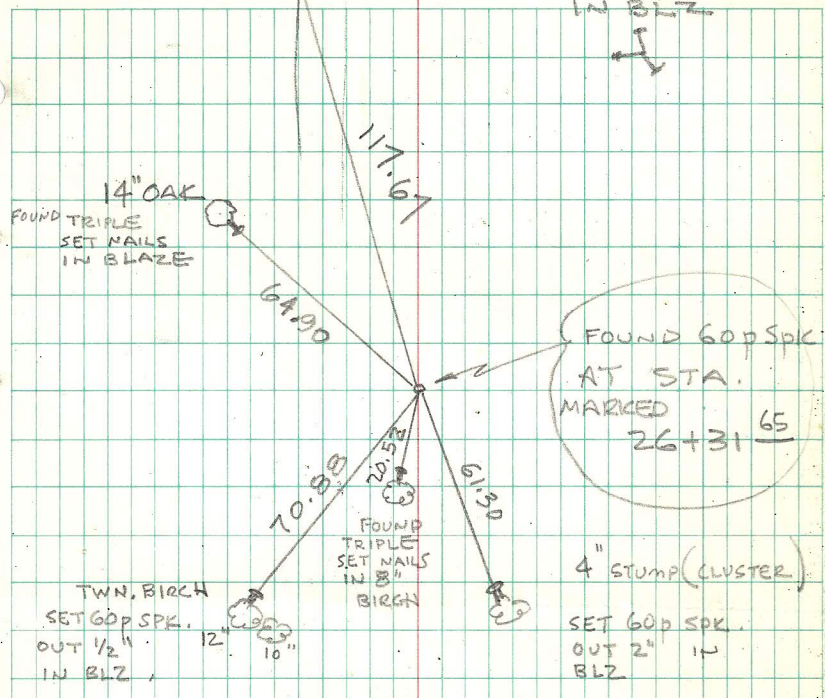 IN BLZ
117.67
14" OAK
FOUND TRIPLE
SET NAILS
IN BLAZE
64.90
FOUND 60p Spk
AT STA.
MARKED
26+31 65
20.52
70.88
61.30
FOUND
TRIPLE
SET NAILS
IN 8"
BIRCH
4" STUMP (CLUSTER)
TWN. BIRCH
SET 60p SPK.
OUT 1/2"
IN BLZ
12"
10"
SET 60p SPK.
OUT 2" IN
BLZ